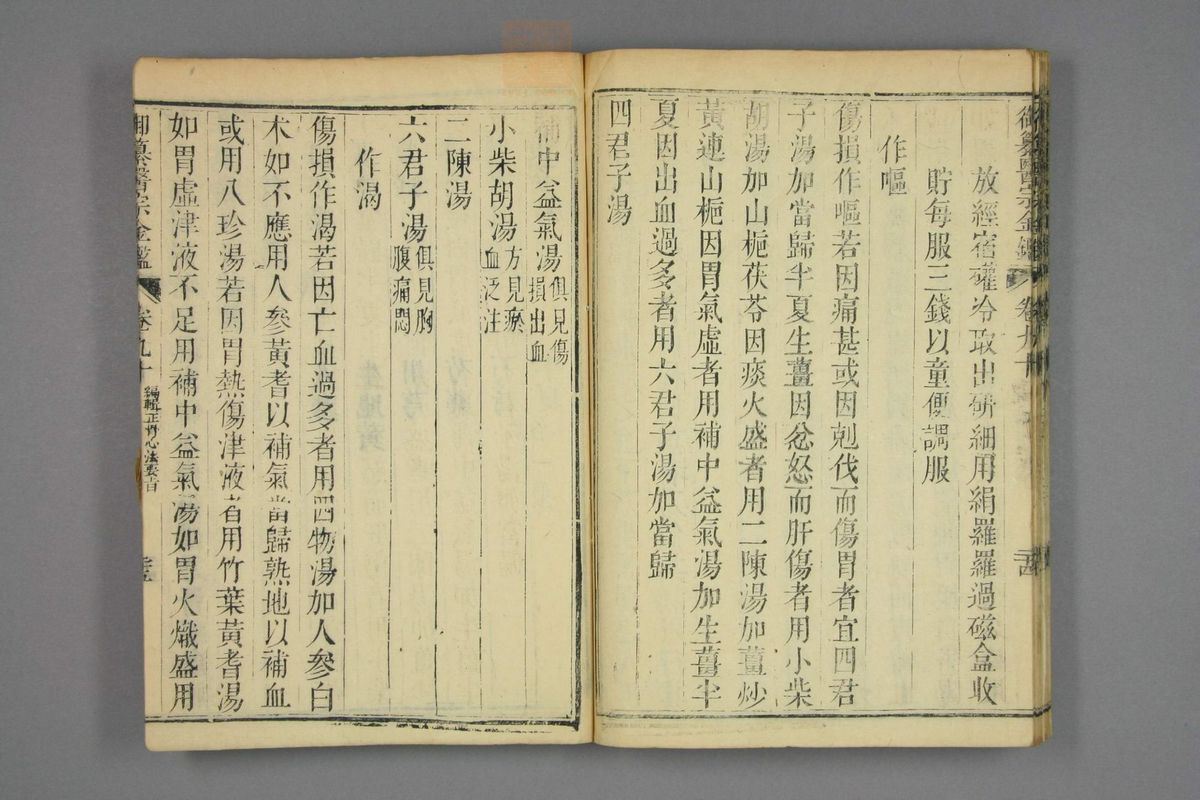 御纂醫宗金鑑 卷九十 二十四
放經宿罐冷取出研細用絹羅羅過磁盒收
貯每服三錢以童便調服
作嘔
傷損作嘔若因痛甚或因剋伐而傷胃者宜四君
子湯加當歸半夏生薑因忿怒而肝傷者用小柴
胡湯加山梔茯苓因痰火盛者用二陳湯加薑炒
黃連山梔因胃氣虛者用補中益氣湯加生薑半
夏因出血過多者用六君子湯加當歸
四君子湯
補中益氣湯 俱見傷損出血
小柴胡湯 方見瘀血泛注
二陳湯
六君子湯 俱見胸腹痛悶
作渴
傷損作渴若因亡血過多者用四物湯加人參白
术如不應用人參黃耆以補氣當歸熟地以補血
或用八珍湯若因胃熱傷津液者用竹葉黃耆湯
如胃虛津液不足用補中益氣湯如胃火熾盛用
御纂醫宗金鑑 卷九十 編輯正骨心法要旨